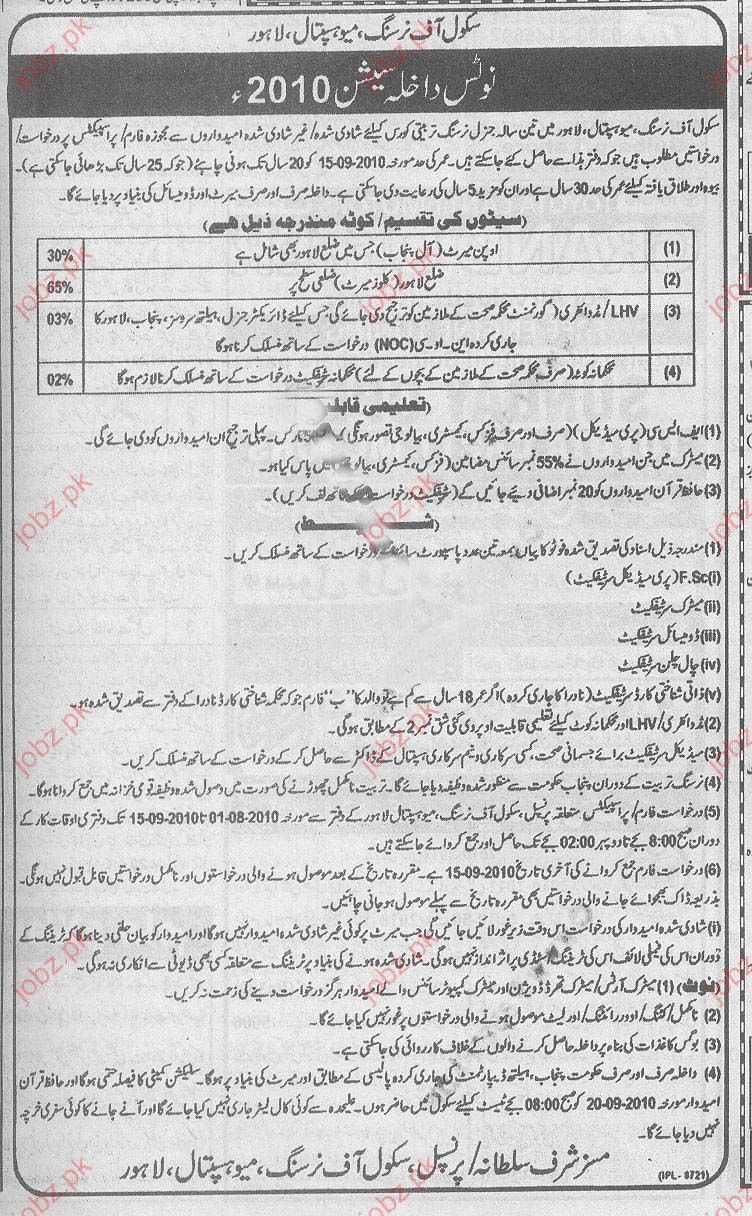 سکول آف نرسنگ، میو ہسپتال، لاہور
نوٹس داخلہ سیشن 2010ء
سکول آف نرسنگ، میو ہسپتال، لاہور میں تین سالہ جنرل نرسنگ تربیتی کورس کیلئے شادی شدہ/غیر شادی شدہ امیدواروں سے مجوزہ فارم/پراسپیکٹس پر درخواست/
درخواستیں مطلوب ہیں جو کہ دفتر ہذا سے حاصل کئے جا سکتے ہیں۔ عمر کی حد مورخہ 15-09-2010 کو 20 سال تک ہونی چاہئے (جو کہ 25 سال تک بڑھائی جا سکتی ہے)۔
بیوہ اور طلاق یافتہ کیلئے عمر کی حد 30 سال ہے اور ان کو مزید 5 سال کی رعایت دی جا سکتی ہے۔ داخلہ صرف اور صرف میرٹ اور ڈومیسائل کی بنیاد پر دیا جائے گا۔
سیٹوں کی تقسیم/کوٹہ مندرجہ ذیل ھے
(1) اوپن میرٹ (آل پنجاب) جس میں ضلع لاہور بھی شامل ہے 30%
(2) ضلع لاہور (کلوز میرٹ) ضلعی سطح پر 65%
(3) LHV/مڈوائفری (گورنمنٹ محکمہ صحت کے ملازمین کو ترجیح دی جائے گی جس کیلئے ڈائریکٹر جنرل، ہیلتھ سروسز، پنجاب، لاہور کا 03%
جاری کردہ این۔او۔سی (NOC) درخواست کے ساتھ منسلک کرنا ہوگا
(4) محکمانہ کوٹہ (صرف محکمہ صحت کے ملازمین کے بچوں کے لئے) محکمانہ سرٹیفکیٹ درخواست کے ساتھ منسلک کرنا لازم ہوگا 02%
تعلیمی
(1) ایف ایس سی (پری میڈیکل) (صرف اور صرف فزکس، کیمسٹری، بیالوجی تصور ہونگی) مارکس۔ پہلی ترجیح ان امیدواروں کو دی جائے گی۔
(2) میٹرک میں جن امیدواروں نے 55% نمبر سائنس مضامین (فزکس، کیمسٹری، بیالوجی) میں پاس کیا ہو۔
(3) حافظ قرآن امیدواروں کو 20 نمبر اضافی دیئے جائیں گے (سرٹیفکیٹ درخواست کے ساتھ لف کریں)۔
(1) مندرجہ ذیل اسناد کی تصدیق شدہ فوٹو کاپیاں بمعہ تین عدد پاسپورٹ سائز درخواست کے ساتھ منسلک کریں۔
(i) F.Sc (پری میڈیکل سرٹیفکیٹ)
(ii) میٹرک سرٹیفکیٹ
(iii) ڈومیسائل سرٹیفکیٹ
(iv) چال چلن سرٹیفکیٹ
(v) ذاتی شناختی کارڈ سرٹیفکیٹ (نادرا کا جاری کردہ) اگر عمر 18 سال سے کم ہے تو والد کا "ب" فارم جو کہ محکمہ شناختی کارڈ نادرا کے دفتر سے تصدیق شدہ ہو۔
(2) مڈوائفری/LHV اور محکمانہ کوٹہ کیلئے تعلیمی قابلیت اوپر دی گئی شق نمبر 2 کے مطابق ہوگی۔
(3) میڈیکل سرٹیفکیٹ برائے جسمانی صحت کسی سرکاری و نیم سرکاری ہسپتال کے ڈاکٹر سے حاصل کر کے درخواست کے ساتھ منسلک کریں۔
(4) نرسنگ تربیت کے دوران پنجاب حکومت سے منظور شدہ وظیفہ دیا جائے گا۔ تربیت نامکمل چھوڑنے کی صورت میں وصول شدہ وظیفہ قومی خزانہ میں جمع کروانا ہوگا۔
(5) درخواست فارم/پراسپیکٹس متعلقہ پرنسپل، سکول آف نرسنگ، میو ہسپتال لاہور کے دفتر سے مورخہ 01-08-2010 تا 15-09-2010 تک دفتری اوقات کار کے
دوران صبح 8:00 بجے تا دوپہر 02:00 بجے تک حاصل اور جمع کروائے جا سکتے ہیں۔
(6) درخواست فارم جمع کروانے کی آخری تاریخ 15-09-2010 ہے۔ مقررہ تاریخ کے بعد موصول ہونے والی درخواستوں اور نامکمل درخواستیں قابل قبول نہیں ہونگی۔
بذریعہ ڈاک بھجوائے جانے والی درخواستیں بھی مقررہ تاریخ سے پہلے موصول ہو جانی چائیں۔
(i) شادی شدہ امیدوار کی درخواست اس وقت زیر غور لائیں جائیں گی جب میرٹ پر کوئی غیر شادی شدہ امیدوار نہیں ہوگا اور امیدوار کو بیان حلفی دینا ہوگا کہ ٹریننگ کے
دوران اس کی فیملی لائف اس کی ٹریننگ/سٹڈی پر اثر انداز نہیں ہوگی۔ شادی شدہ ہونے کی بنیاد پر ٹریننگ سے متعلقہ کسی بھی ڈیوٹی سے انکاری نہ ہوگی۔
نوٹ (1) میٹرک آرٹس/میٹرک تھرڈ ڈویژن اور میٹرک کمپیوٹر سائنس والے امیدوار ہرگز درخواست دینے کی زحمت نہ کریں۔
(2) نامکمل/کٹنگ/اوور رائٹنگ/اور لیٹ موصول ہونے والی درخواستوں پر غور نہیں کیا جائے گا۔
(3) بوگس کاغذات کی بناء پر داخلہ حاصل کرنے والوں کے خلاف کارروائی کی جا سکتی ہے۔
(4) داخلہ صرف اور صرف حکومت پنجاب، ہیلتھ ڈیپارٹمنٹ کی جاری کردہ پالیسی کے مطابق اور میرٹ کی بنیاد پر ہوگا۔ سلیکشن کمیٹی کا فیصلہ حتمی ہوگا اور حافظ قرآن
امیدوار مورخہ 20-09-2010 کو صبح 08:00 بجے ٹیسٹ کیلئے سکول میں حاضر ہوں۔ علیحدہ سے کوئی کال لیٹر جاری نہیں کیا جائے گا اور آنے جانے کا کوئی سفری خرچہ
نہیں دیا جائے گا۔
مسز شرف سلطانہ/پرنسپل، سکول آف نرسنگ، میو ہسپتال، لاہور
(IPL-8721)
jobz.pk